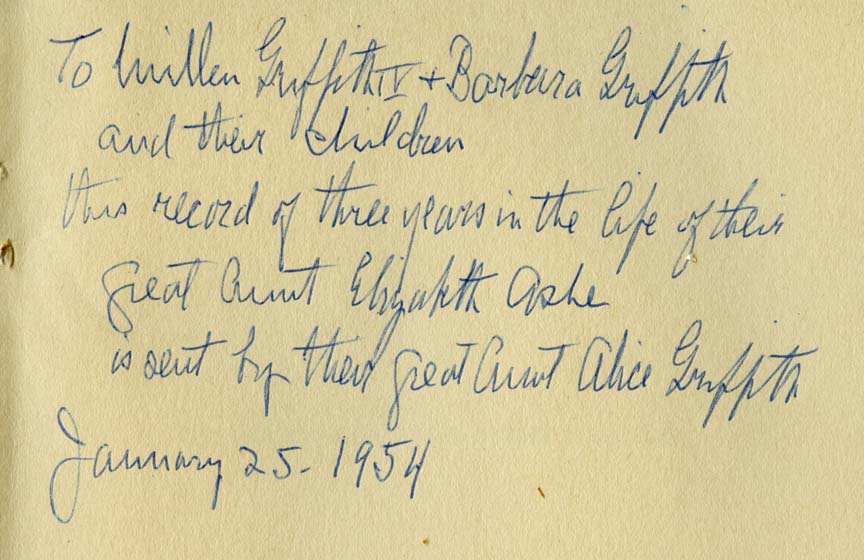 To Millen Griffith IV + Barbara Griffith
and their children
this record of three years in the life of their
great Aunt Elizabeth Ashe
is sent by their great Aunt Alice Griffith
January 25 - 1954